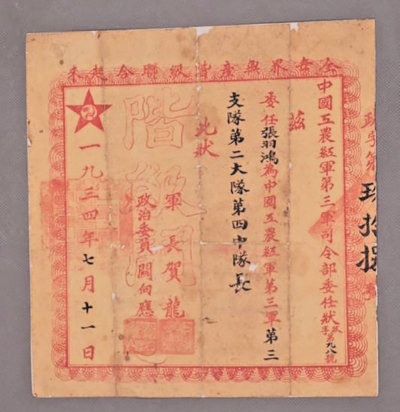 全世界無產階級聯合起來
中國工農紅軍第三軍司令部委任狀
政字第九八號
茲
委任張羽鴻為中國工農紅軍第三軍第三
支隊第二大隊第四中隊長
此狀
軍長賀龍
政治委員關向應
一九三四年七月十一日
階級